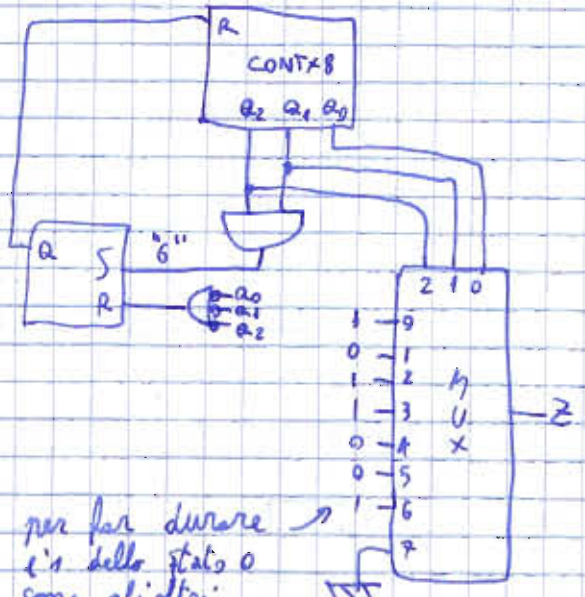 R
CONTX8
Q2 Q1 Q0
Q S "6"
R
Q0
Q1
Q2
2 1 0
1 0
0 1
1 2
1 3
0 4
0 5
1 6
7
MUX
Z
per far durare
l'1 dello stato 0
come gli altri